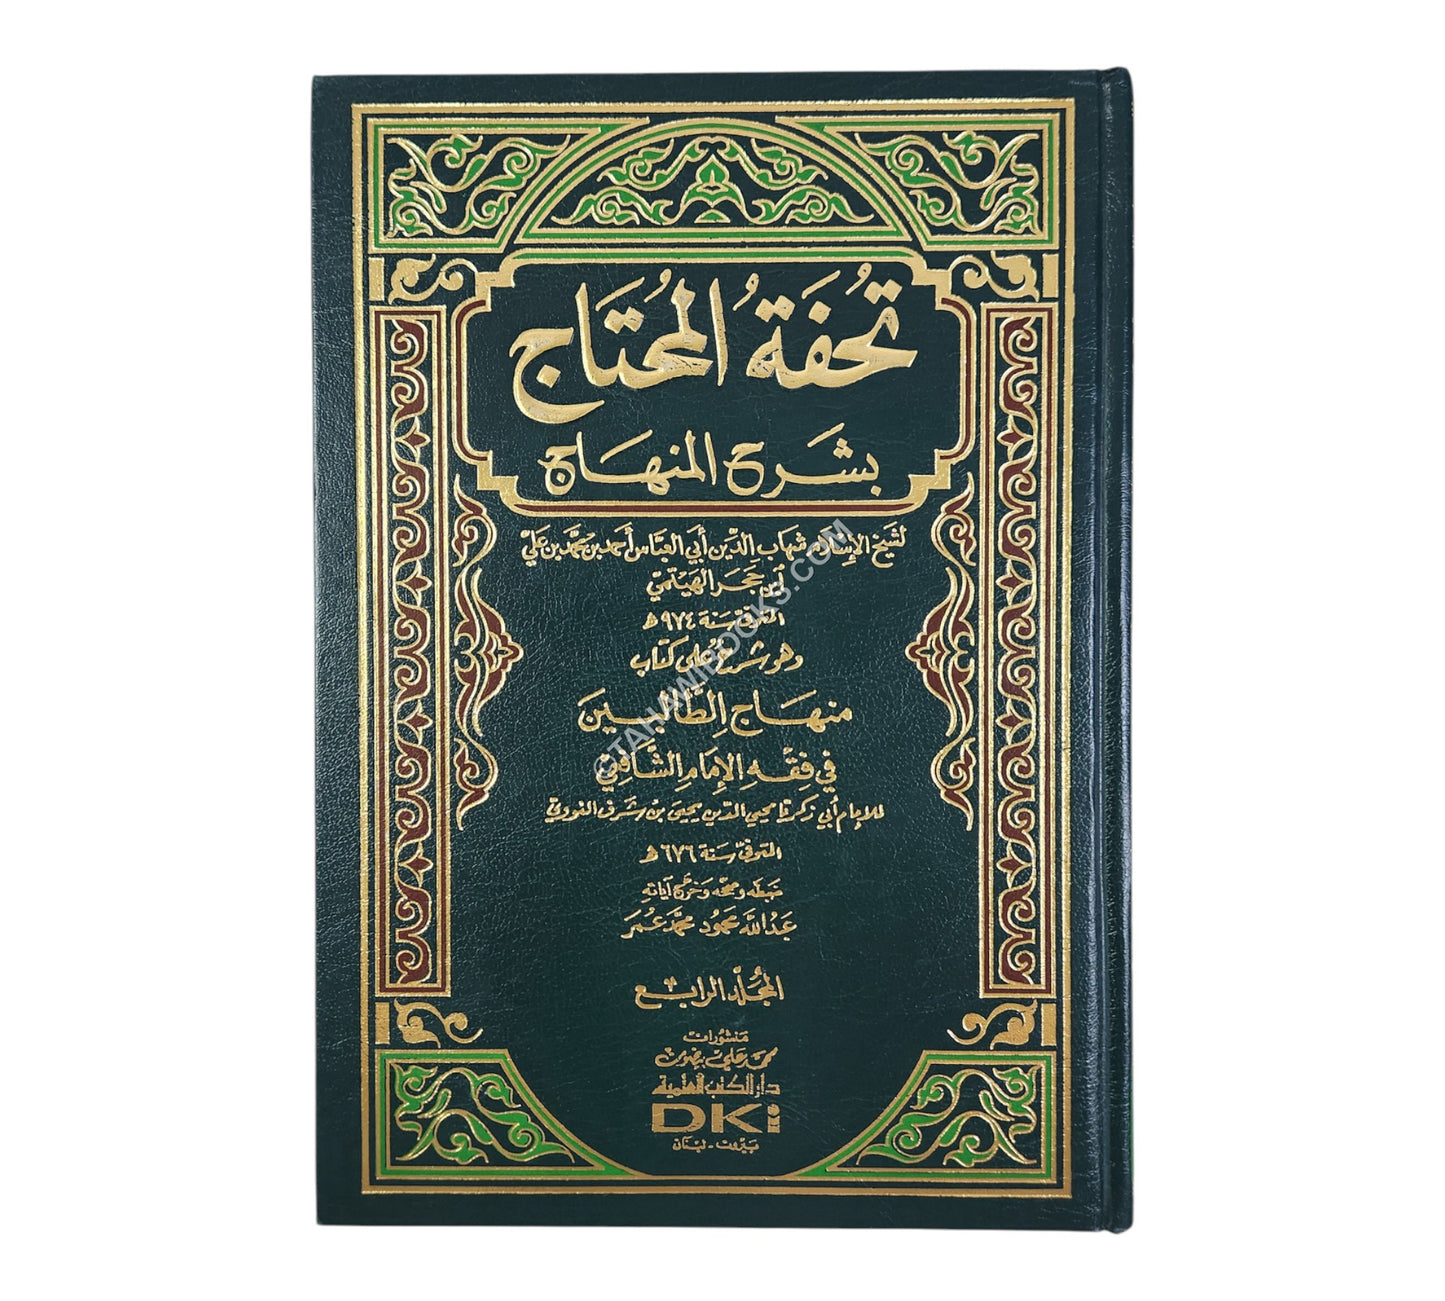 تُحفَةُ المُحتَاج
بشَرح المنهَاج
لشيخ الإسلام شهاب الدّين أبي العبّاس أحمد بن محمّد بن عَليّ
ابن حَجَر الهَيتَميّ
المتوفّى سَنَة ٩٧٤ هـ
وهو شَرحٌ عَلى كتاب
منهَاج الطّالبِين
في فِقه الإمَامِ الشّافِعيّ
للإمام أبي زكريّا محيي الدّين يحيى بن شَرف النوويّ
المتوفّى سَنَة ٦٧٦ هـ
ضبَطه وصحّحه وخرّج آياته
عَبدُ اللّه محمُود محمّد عُمَر
المجُلّد الرابع
مَنشورات
محمد عَلي بيضون
دار الكتب العلمية
DKi
بَيْروت - لبْنَان
©TAHAWIBOOKS.COM